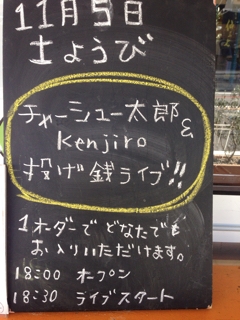 11月5日
土ょうび
チャーシュー太郎&
Kenjiro
投げ銭ライブ!!
1オーダーで どなたでも
お入りいただけます。
18:00 オープン
18:30 ライブスタート